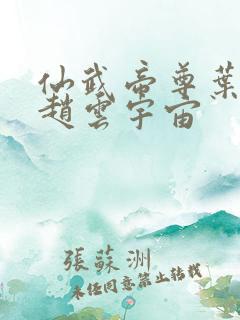 仙武帝尊葉
趙雲宇宙
張蘇洲
未经同意禁止转载